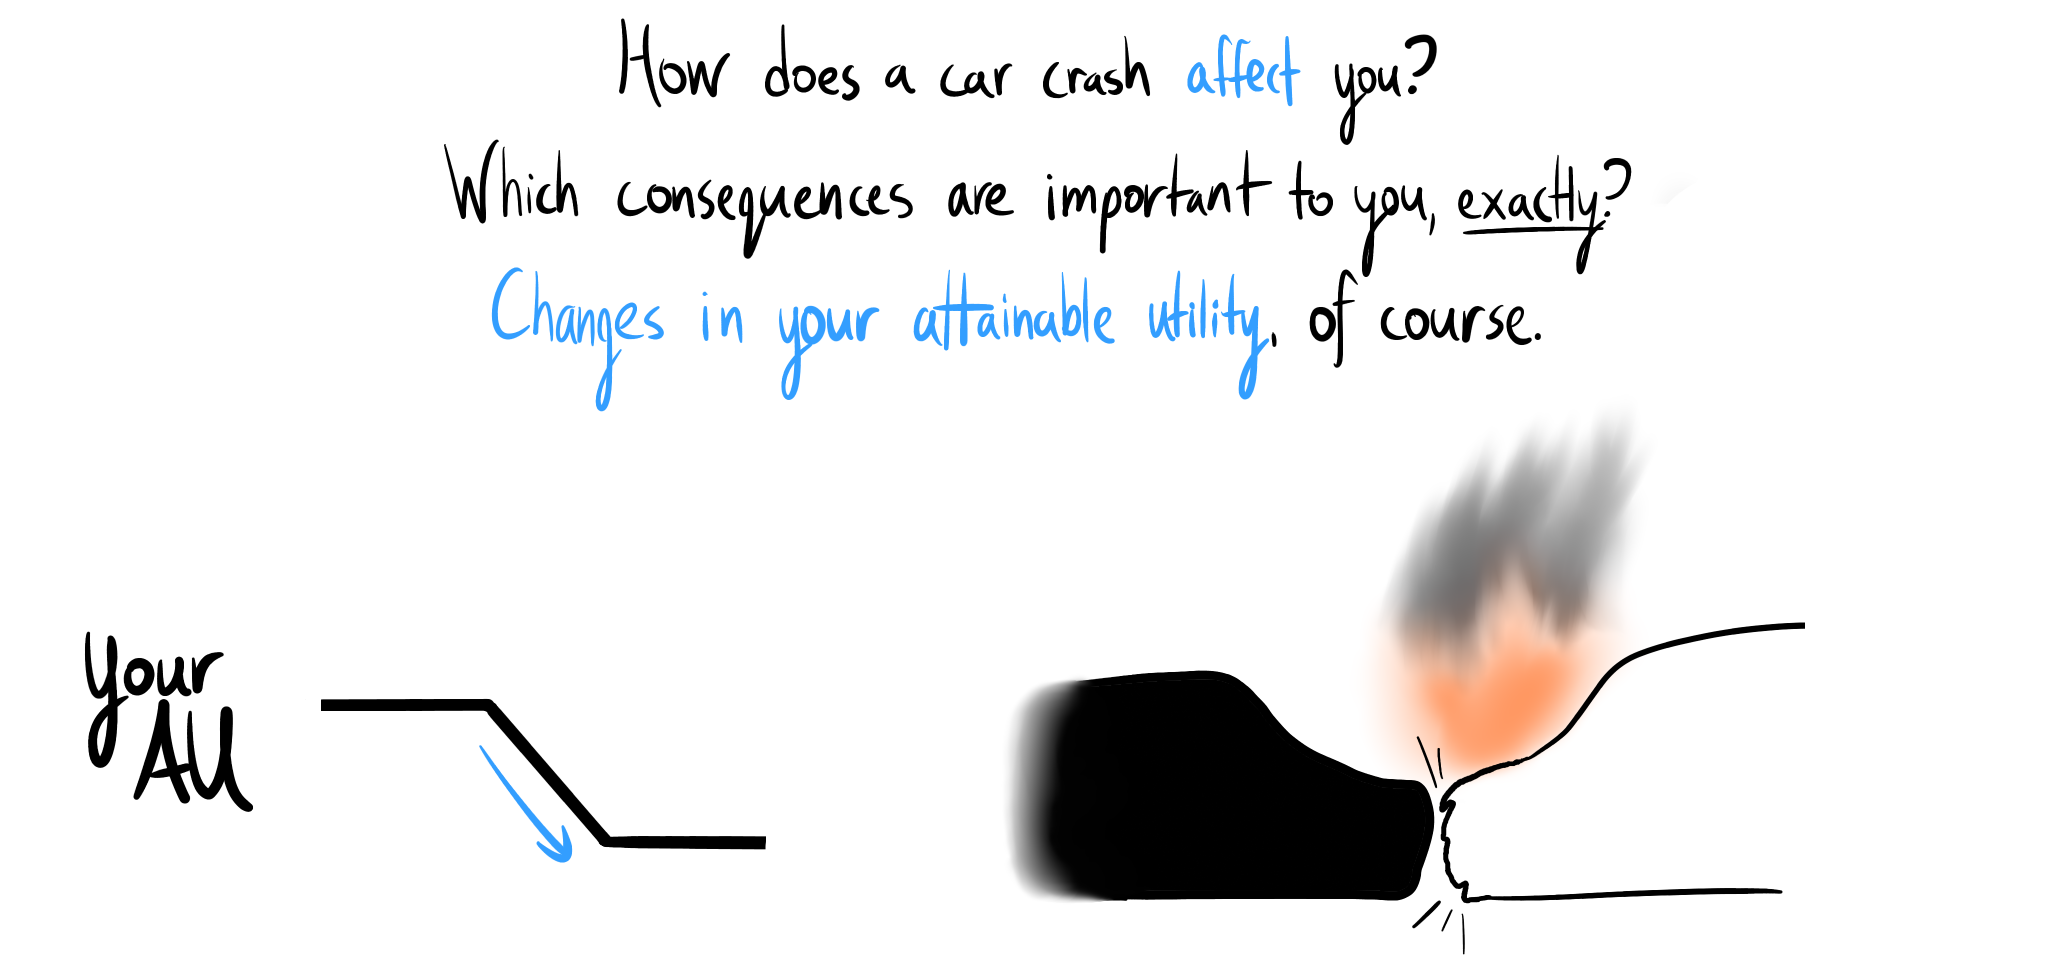 How does a car crash affect you?
Which consequences are important to you, exactly?
Changes in your attainable utility, of course.
Your
AU